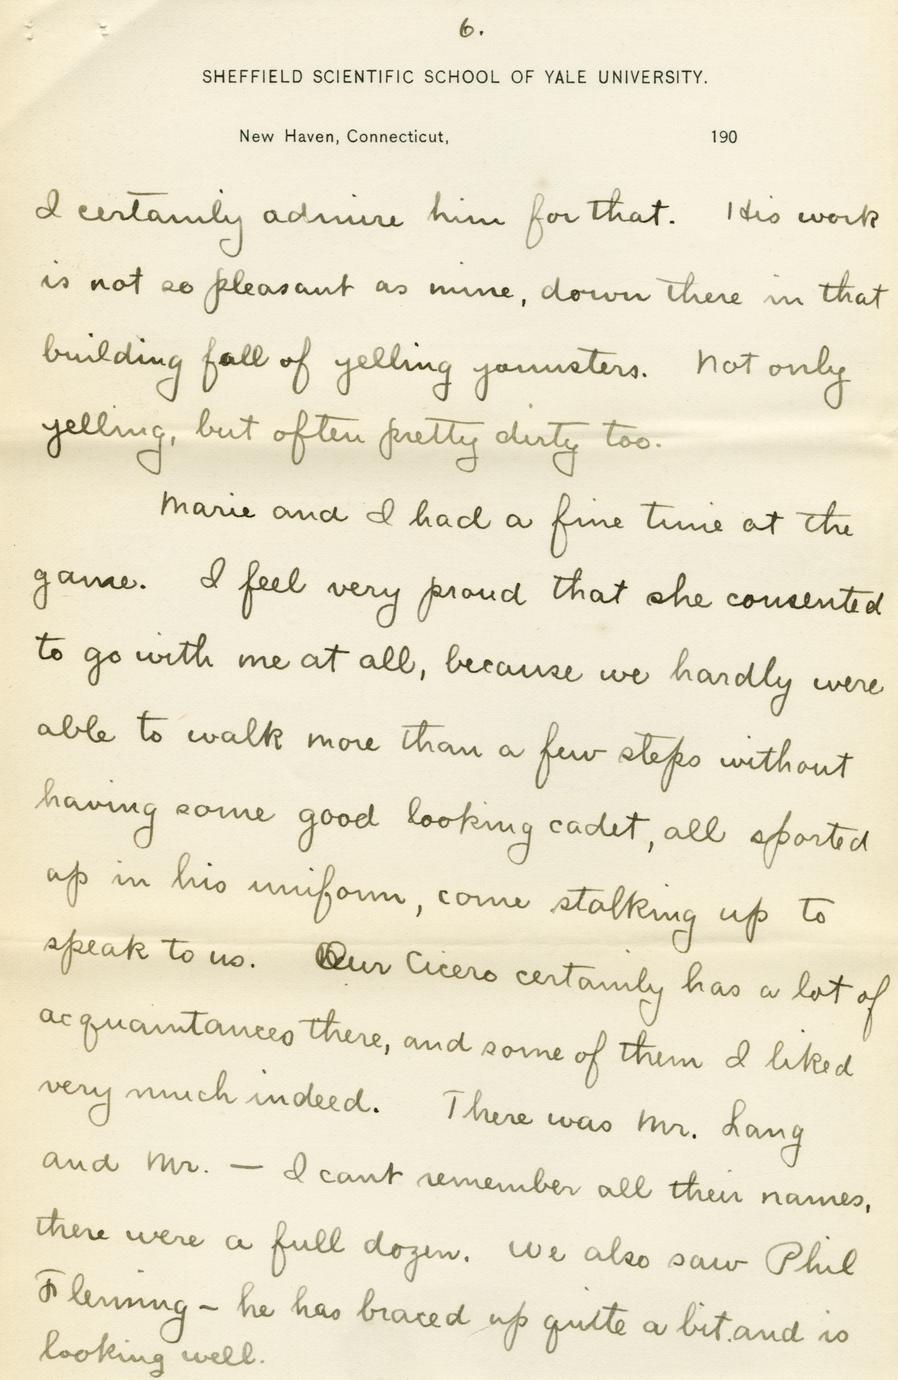 6.
SHEFFIELD SCIENTIFIC SCHOOL OF YALE UNIVERSITY.
New Haven, Connecticut, 190
I certainly admire him for that. His work
is not so pleasant as mine, down there in that
building full of yelling younsters. Not only
yelling, but often pretty dirty too.
Marie and I had a fine time at the
game. I feel very proud that she consented
to go with me at all, because we hardly were
able to walk more than a few steps without
having some good looking cadet, all sported
up in his uniform, come stalking up to
speak to us. Our Cicero certainly has a lot of
acquaintances there, and some of them I liked
very much indeed. There was Mr. Lang
and Mr. — I cant remember all their names,
there were a full dozen. We also saw Phil
Fleming – he has braced up quite a bit and is
looking well.